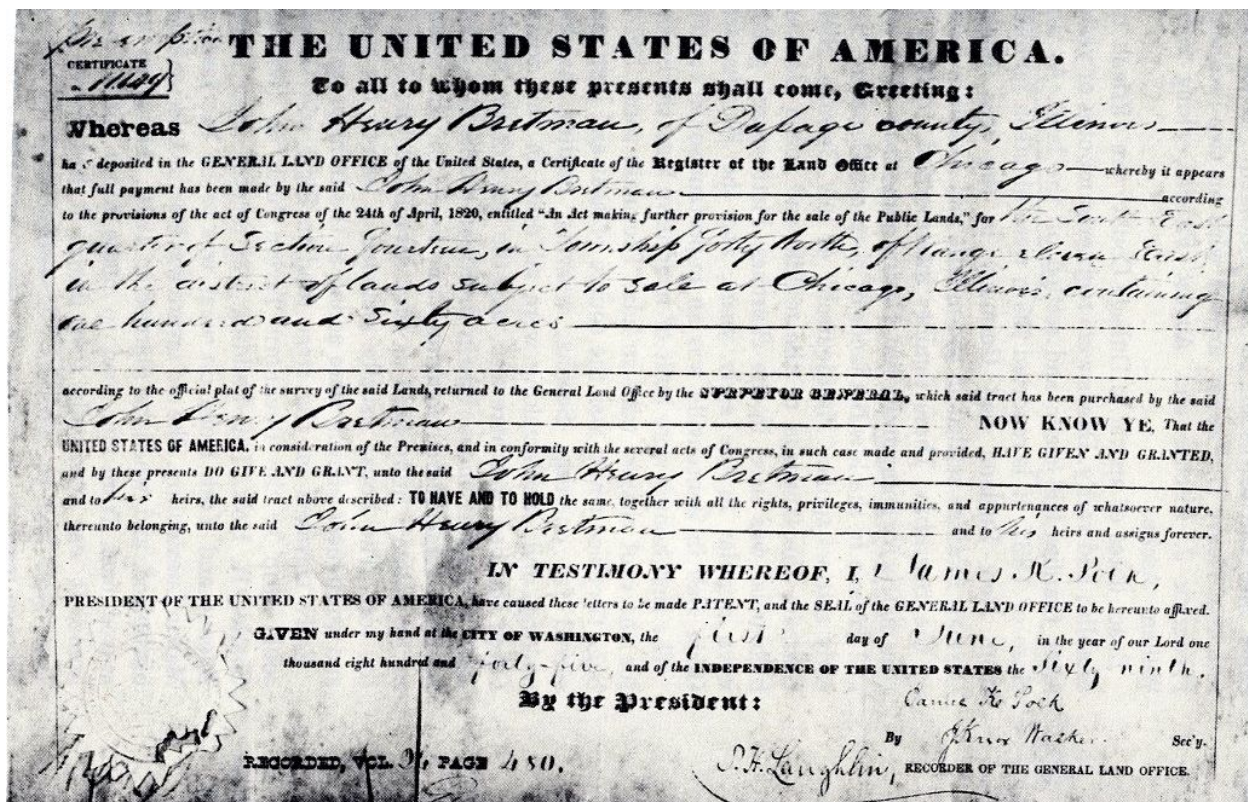 Pre-emption
THE UNITED STATES OF AMERICA.
CERTIFICATE
To all to whom these presents shall come, Greeting:
Whereas John Henry Bretman, of DuPage county, Illinois
ha s deposited in the GENERAL LAND OFFICE of the United States, a Certificate of the Register of the Land Office at Chicago whereby it appears
that full payment has been made by the said John Henry Bretman according
to the provisions of the act of Congress of the 24th of April, 1820, entitled "An Act making further provision for the sale of the Public Lands," for the South East
quarter of Section fourteen, in Township forty North, of Range eleven East,
in the district of lands subject to sale at Chicago, Illinois, containing
one hundred and sixty acres
according to the official plat of the survey of the said Lands, returned to the General Land Office by the SURVEYOR GENERAL, which said tract has been purchased by the said
John Henry Bretman NOW KNOW YE, That the
UNITED STATES OF AMERICA, in consideration of the Premises, and in conformity with the several acts of Congress, in such case made and provided, HAVE GIVEN AND GRANTED,
and by these presents DO GIVE AND GRANT, unto the said John Henry Bretman
and to his heirs, the said tract above described: TO HAVE AND TO HOLD the same, together with all the rights, privileges, immunities, and appurtenances of whatsoever nature,
thereunto belonging, unto the said John Henry Bretman and to his heirs and assigns forever.
IN TESTIMONY WHEREOF, I, James K. Polk,
PRESIDENT OF THE UNITED STATES OF AMERICA, have caused these letters to be made PATENT, and the SEAL of the GENERAL LAND OFFICE to be hereunto affixed.
GIVEN under my hand at the CITY OF WASHINGTON, the first day of June, in the year of our Lord one
thousand eight hundred and forty-five, and of the INDEPENDENCE OF THE UNITED STATES the sixty ninth.
By the President: James K. Polk
By J. Knox Walker Sec'y.
RECORDED, VOL. PAGE 480. S. H. Laughlin, RECORDER OF THE GENERAL LAND OFFICE.